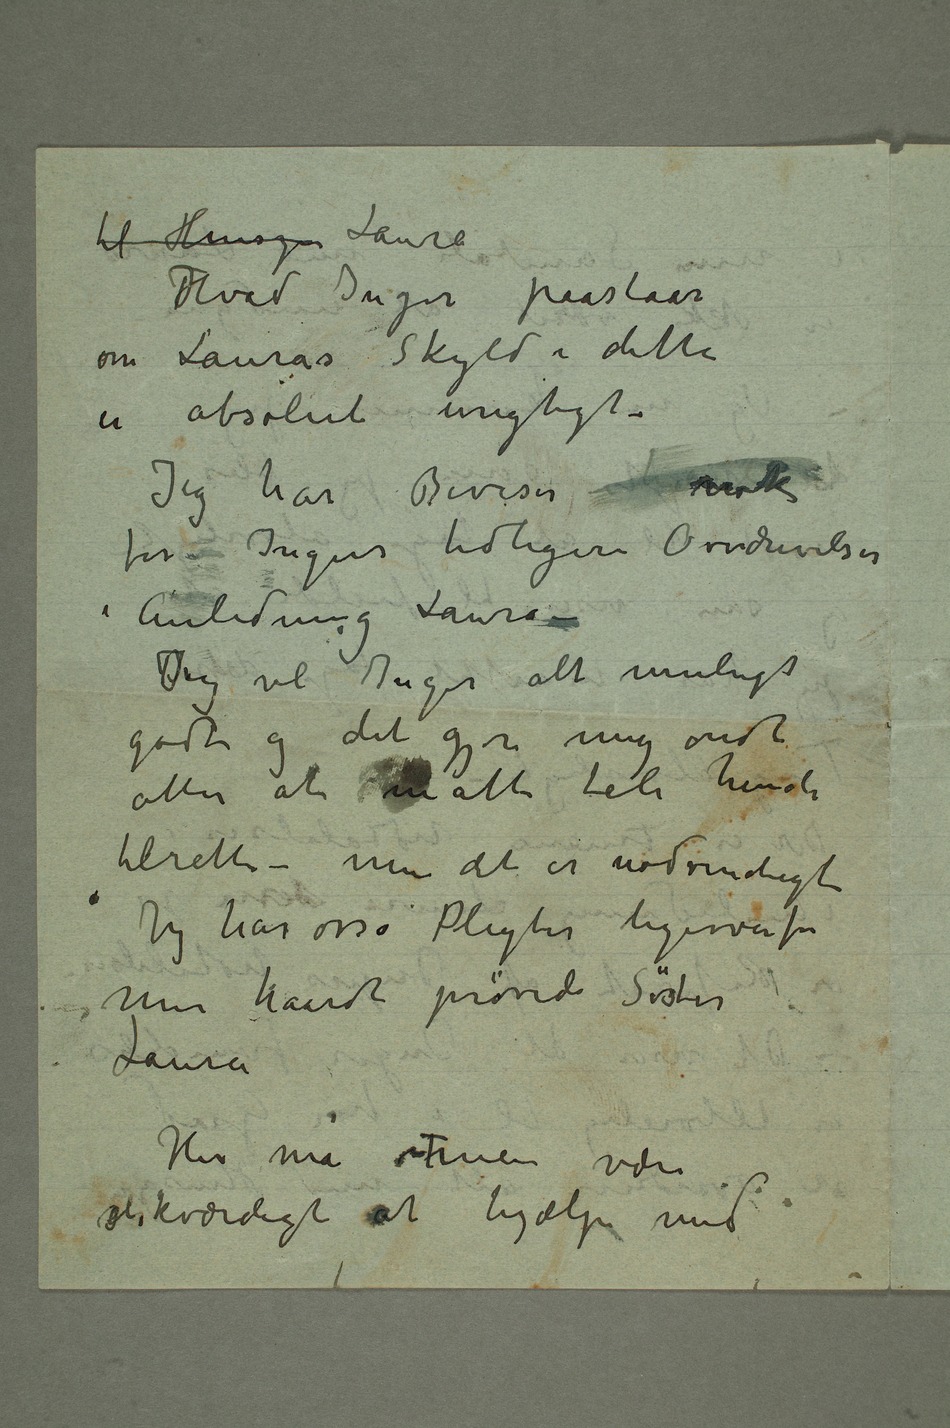 til Laura
Hvad Inger paastaar
om Lauras Skyld i dette
er absolut urigtigt –
Jeg har Beviser nok
for Ingers tidligere Overdrivelser
i Anledning Laura –
Jeg vil Inger alt muligt
godt og det gjør mig ondt
atter at måtte tale hende
tilrette – men det er nødvendigt
Jeg har osså Pligter ligeoverfor
min haardt prøvede Söster
Laura
Her må være
elskværdigt at hjælpe med